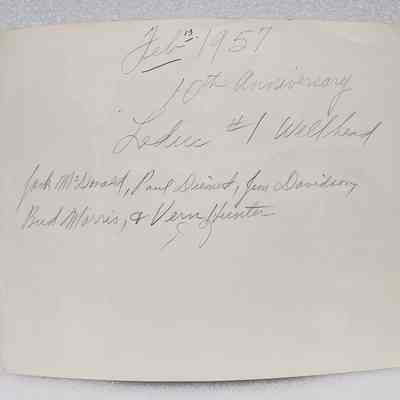 Feb 13. 1957
10th Anniversary
Leduc #1 Wellhead
Jack McDonald, Paul Dienert, Jim Davidson,
Bud Morris, & Vern Hunter